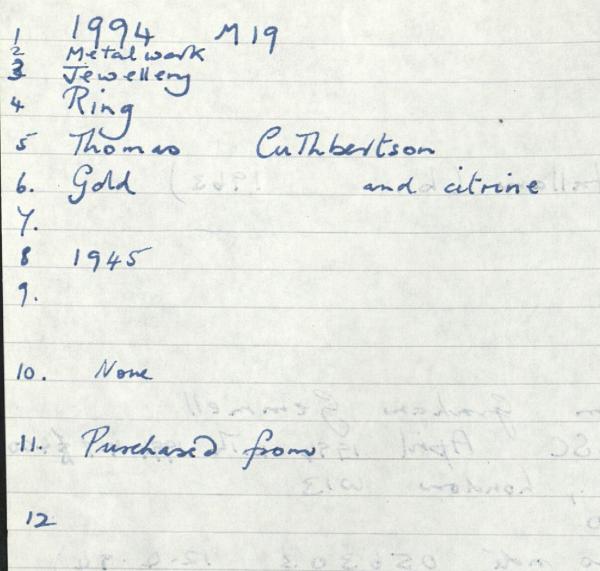 1 1994 M19
2 Metalwork
3 Jewellery
4 Ring
5 Thomas Cuthbertson
6. Gold and citrine
7.
8 1945
9.
10. None
11. Purchased from
12